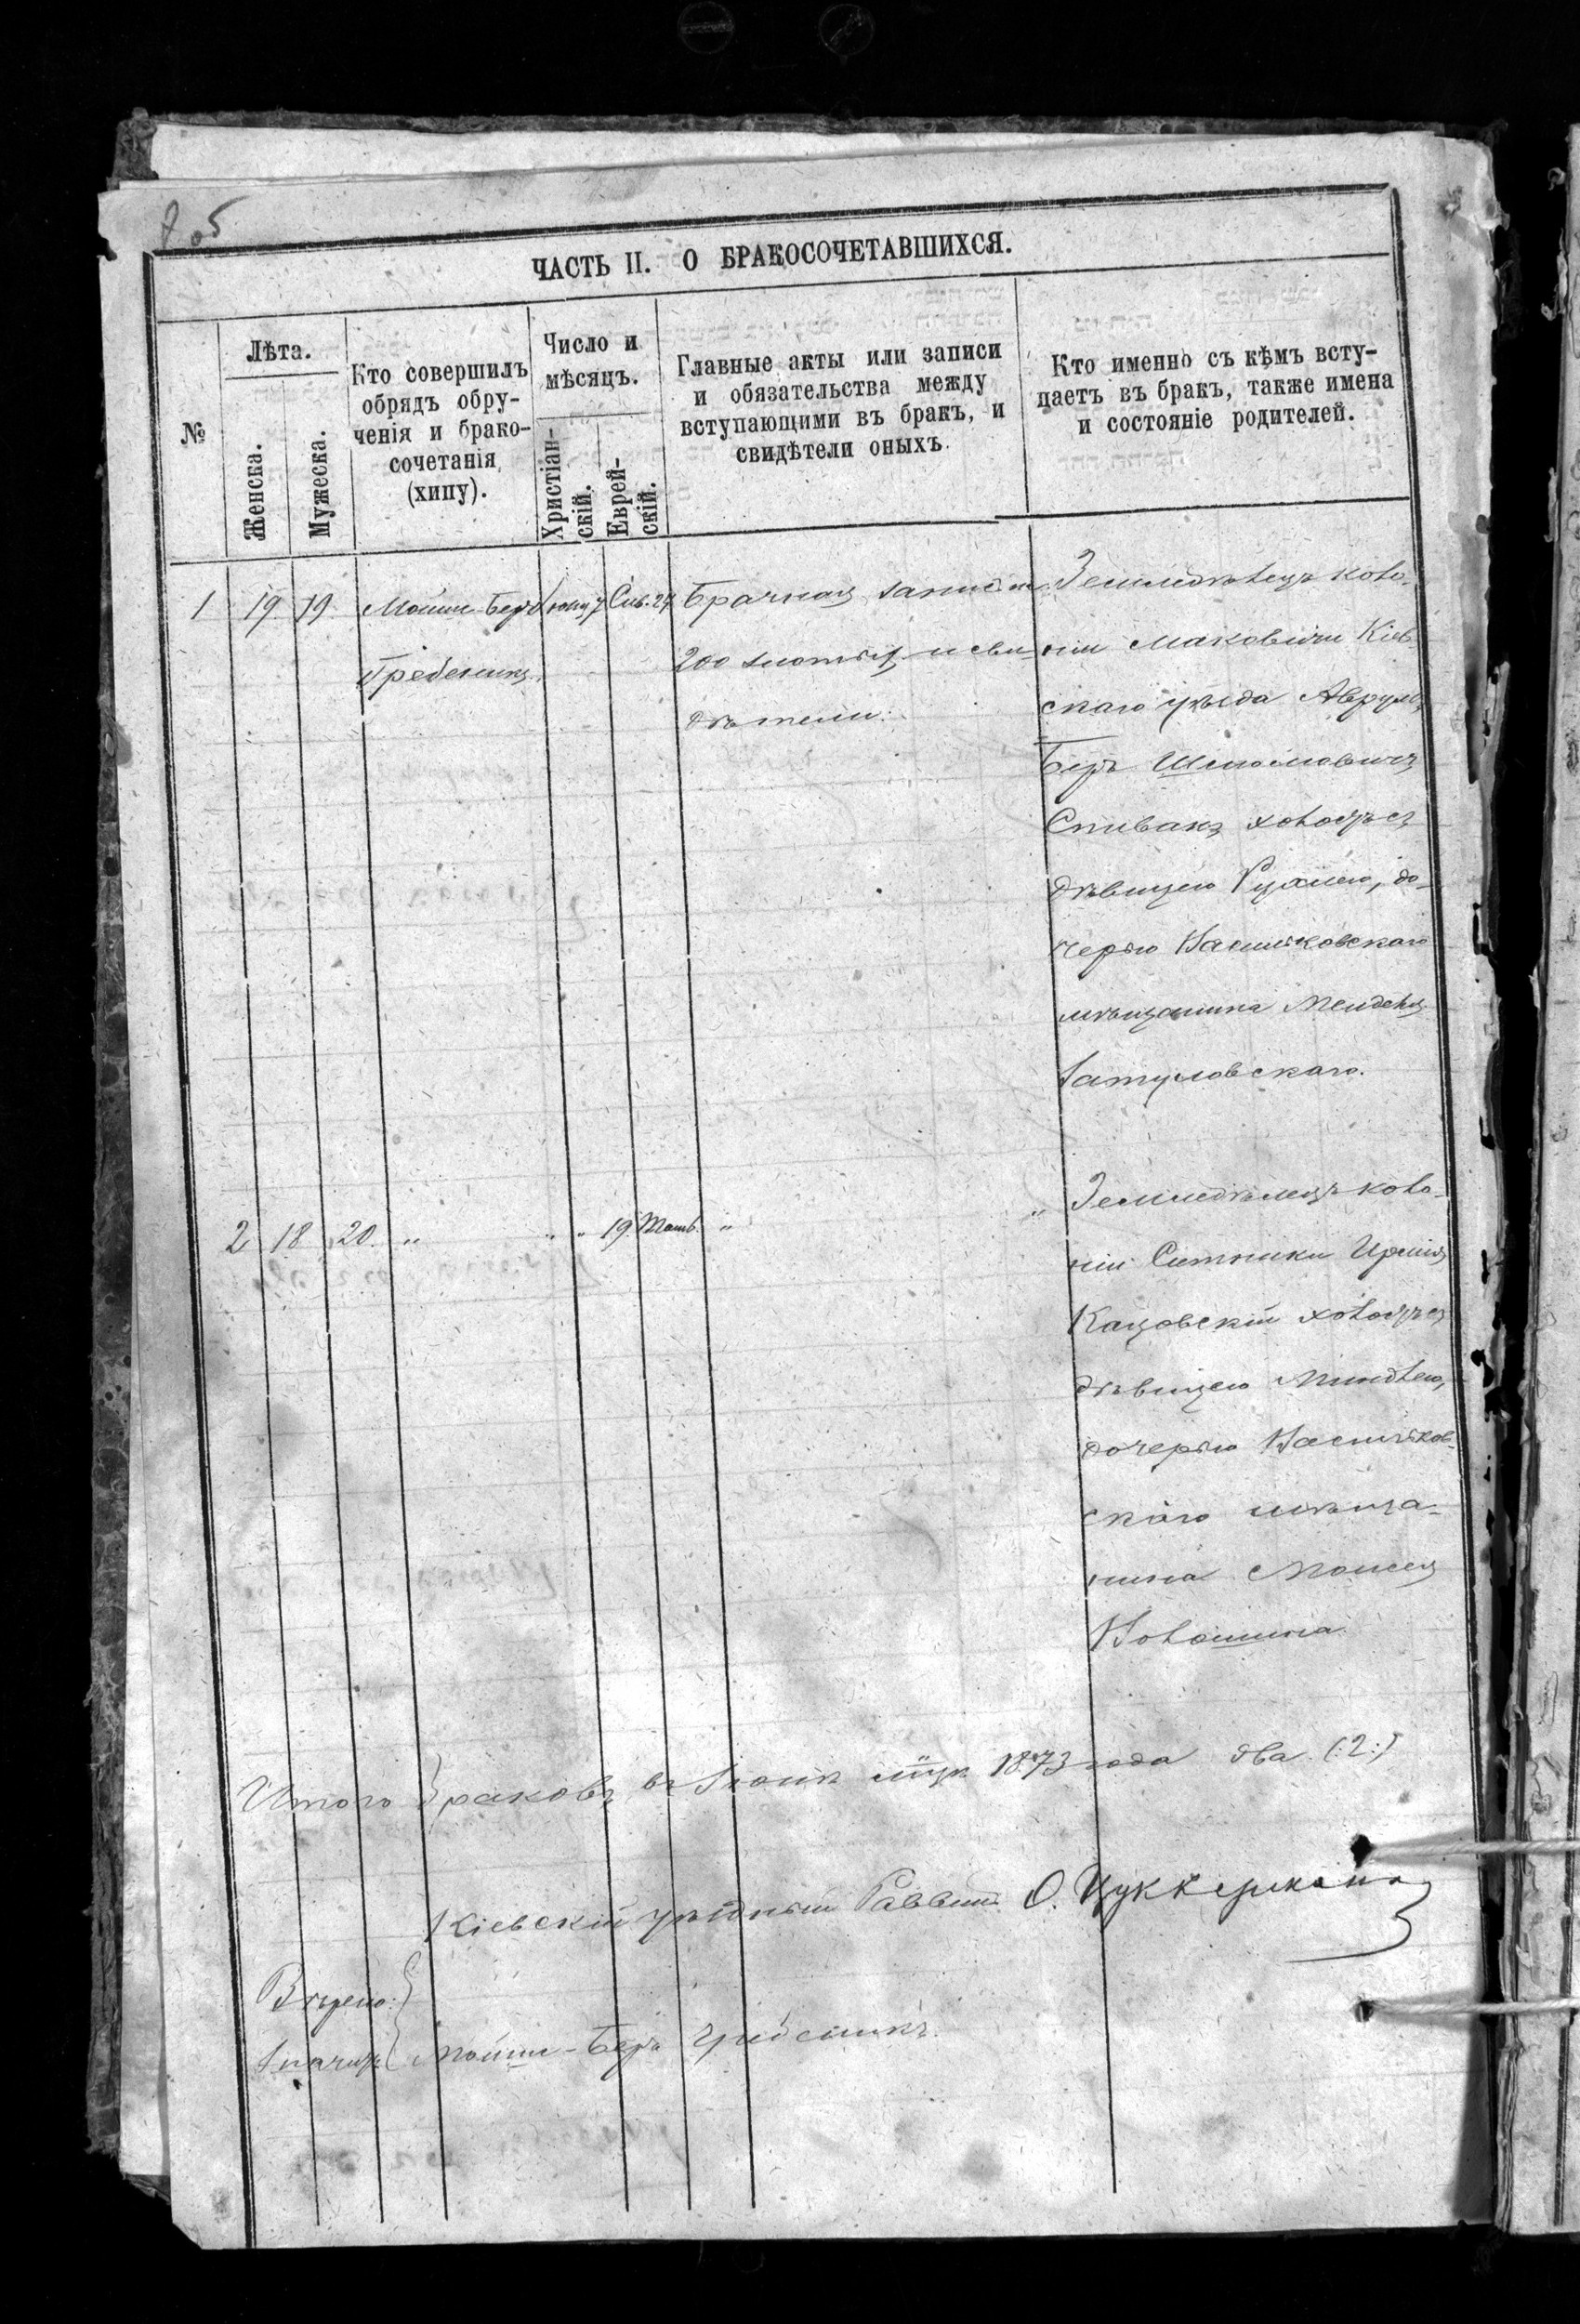 ЧАСТЬ II. О БРАКОСОЧЕТАВШИХСЯ.
№
Лѣта.
Женска.
Мужеска.
Кто совершилъ
обрядъ обру-
ченія и брако-
сочетанія
(хипу).
Число и
мѣсяцъ.
Христіан-
скій.
Еврей-
скій.
Главные акты или записи
и обязательства между
вступающими въ бракъ, и
свидѣтели оныхъ.
Кто именно съ кѣмъ всту-
паетъ въ бракъ, также имена
и состояніе родителей.
1 19 19 Мойше-Беръ
Гребеникъ.
Сив. 24
Брачная запись на
200 злотыхъ и сви-
дѣтели.
Земледѣлецъ коло-
ніи Маковичи Кіев-
скаго уѣзда Аврумъ
Беръ Шліомовичъ
Спивакъ холостъ съ
дѣвицею Рухлею, до-
черью Васильковскаго
мѣщанина Менделя
Затуловскаго.
2 18 20. " " " 19 Тамъ. " "
Земледѣлецъ коло-
ніи Ситники
Кацовскій холостъ съ
дѣвицею Миндлею,
дочерью Васильков-
скаго мѣща-
нина Моисея
Волошина.
Итого браковъ въ Іюнѣ мцѣ 1873 года два (:2:)
Кіевскій уѣздный Раввинъ О. Цуккерманъ
Мойше-Беръ Гребеникъ.